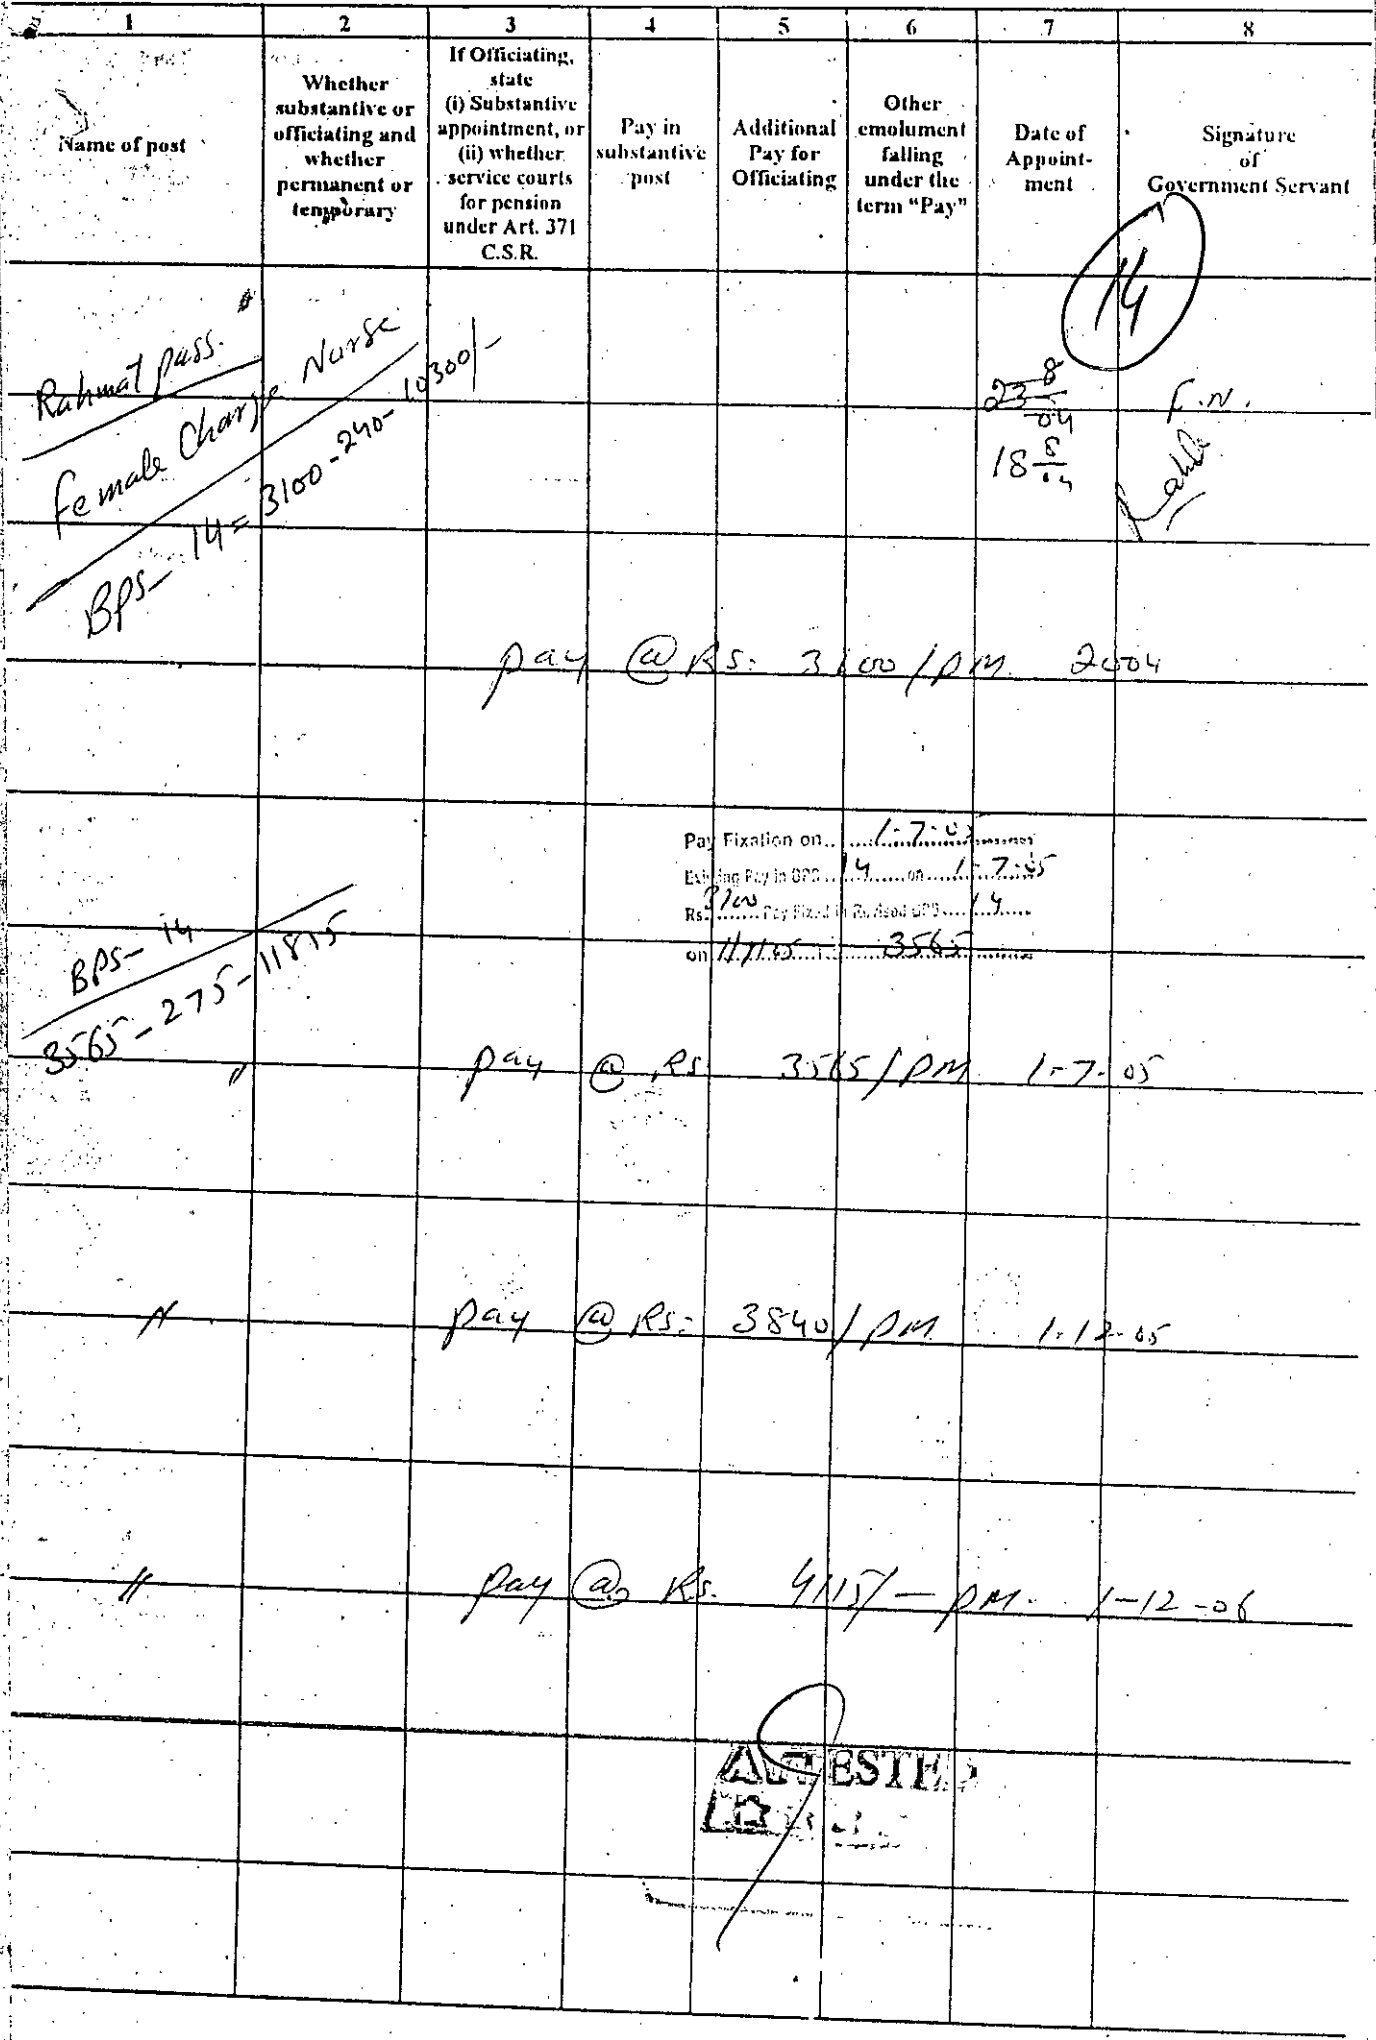 1 2 3 4 5 6 7 8
Name of post
Whether
substantive or
officiating and
whether
permanent or
temporary
If Officiating,
state
(i) Substantive
appointment, or
(ii) whether
service courts
for pension
under Art. 371
C.S.R.
Pay in
substantive
post
Additional
Pay for
Officiating
Other
emolument
falling
under the
term "Pay"
Date of
Appoint-
ment
Signature
of
Government Servant
14
Rahmat pass.
Female Charge Nurse
BPS- 14 = 3100-240-10300/-
23 8/04 F.N.
18 8/04
pay @ Rs: 3100/pM 2004
Pay Fixation on 1-7-05
Existing Pay in BPS 14 on 1-7-05
Rs. 3100 Pay Fixed in Revised BPS 14
on 1/7/05 3565
BPS- 14
3565-275-11815
" pay @ Rs 3565/PM 1-7-05
" pay @ Rs: 3840/PM 1-12-05
" pay @ Rs. 4115/- PM. 1-12-06
ATTESTED